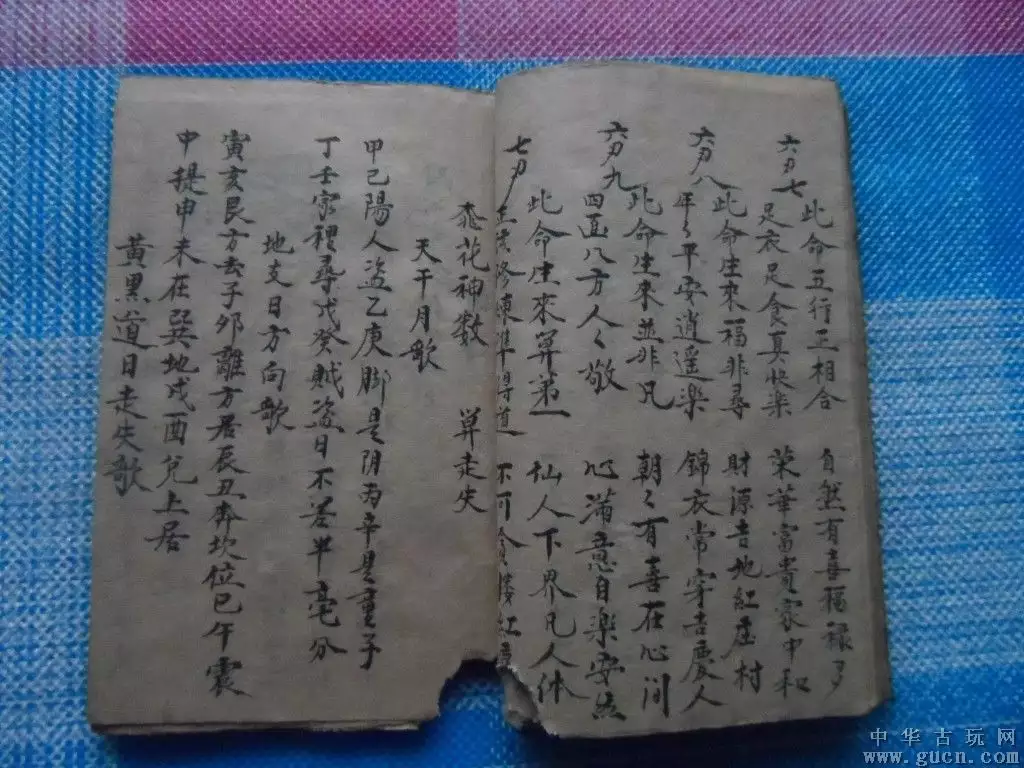 六刃七
此命五行三相合 自然有喜福禄多
足衣足食真快楽 荣華富貴家中和
六刃八
此命生來福非尋 財源吉地紅庄村
年〻平安逍遥楽 錦衣常穿吉慶人
六刃九
此命生來並非凡 朝〻有喜在心间
四面八方人〻敬 心满意自楽安然
七刃
此命生來算苐一 仙人下界凡人体
不可
花神数 算走失
天干月歌
甲己陽人盗乙庚脚是阴丙辛是童子
丁壬家裡尋戊癸贼盗日不差半毫分
地支日方向歌
寅亥艮方去子卯離方居辰丑奔坎位巳午震
中提申未在巽地戌酉兌上居
黄黑道日走失歌
中华古玩网
www.gucn.com